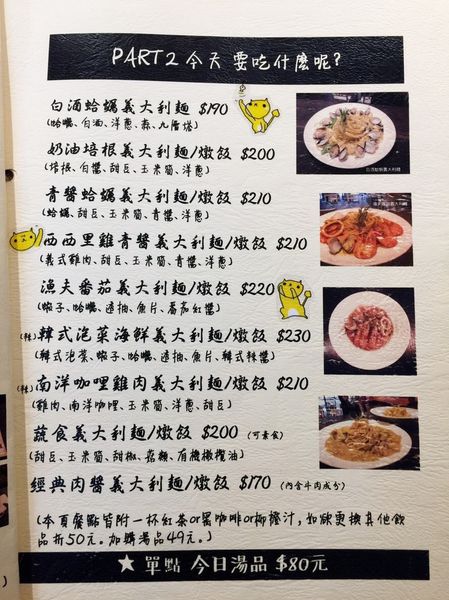 PART2 今天 要吃什麼呢?
白酒蛤蠣義大利麵 $190
(蛤蠣、白酒、洋蔥、蒜、九層塔)
奶油培根義大利麵/燉飯 $200
(培根、白醬、甜豆、玉米筍、洋蔥)
青醬蛤蠣義大利麵/燉飯 $210
(蛤蠣、甜豆、玉米筍、青醬、洋蔥)
西西里雞青醬義大利麵/燉飯 $210
(義式雞肉、甜豆、玉米筍、青醬、洋蔥)
漁夫番茄義大利麵/燉飯 $220
(蝦子、蛤蠣、透抽、魚片、番茄紅醬)
(辣)韓式泡菜海鮮義大利麵/燉飯 $230
(韓式泡菜、蝦子、蛤蠣、透抽、魚片、韓式辣醬)
(辣)南洋咖哩雞肉義大利麵/燉飯 $210
(雞肉、南洋咖哩、玉米筍、洋蔥、甜豆)
蔬食義大利麵/燉飯 $200 (可素食)
(甜豆、玉米筍、甜椒、菇類、有機橄欖油)
經典肉醬義大利麵/燉飯 $170 (內含牛肉成分)
(本頁餐點皆附一杯紅茶or黑咖啡or柳橙汁,如欲更換其他飲
品折50元。加購湯品49元。)
★ 單點 今日湯品 $80元
白酒蛤蠣義大利麵